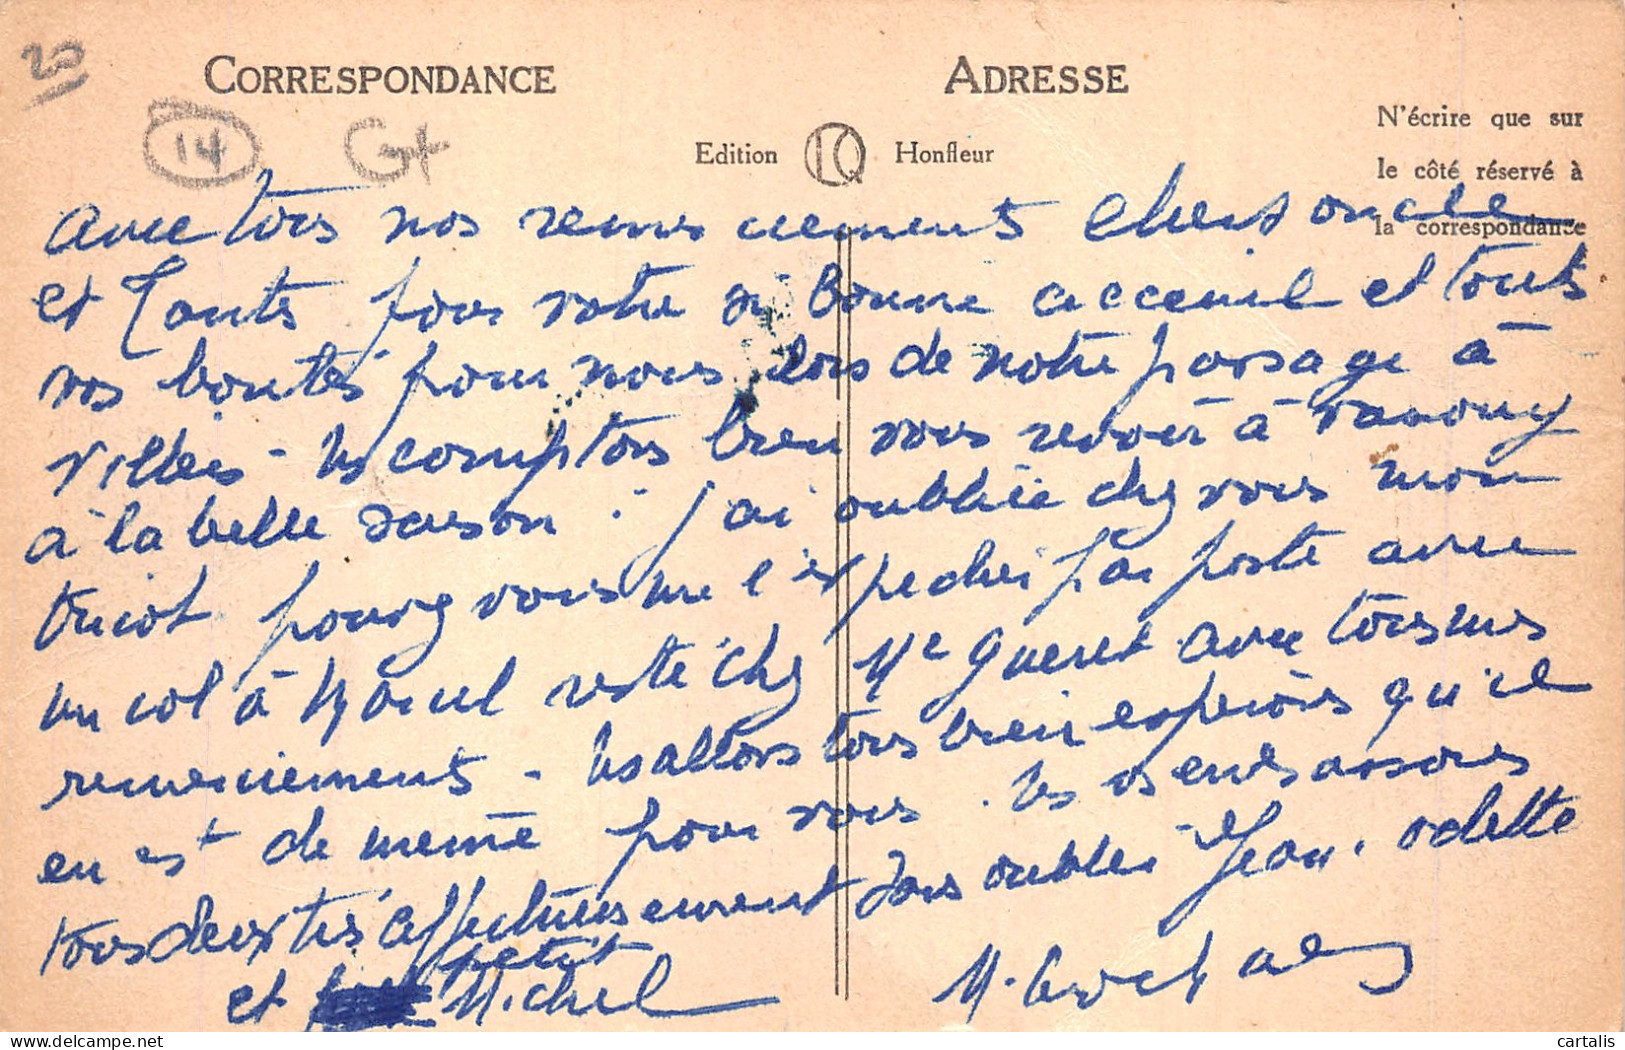 20
CORRESPONDANCE
ADRESSE
14 Gt
Edition LCQ Honfleur
N'écrire que sur
le côté réservé à
la correspondance
avec tous nos remerciements chers oncle
et Tante pour votre si bonne acceuil et touts
vos bontés pour nous lors de notre passage à
Villers - Ns comptons bien vous revoir à
à la belle saison. j'ai oubliée chez vous mon
tricot pourez vous me l'expedier j'ai posté avec
un col à Marcel resté chez Me Gueret avec tous mes
remerciements - Ns allons tous bien esperons qu'il
en est de même pour vous. Ns vs enbrassons
tous deux très affectueusement sans oublier Jean. Odette
et petit Michel
M.
cartalis
delcampe.net